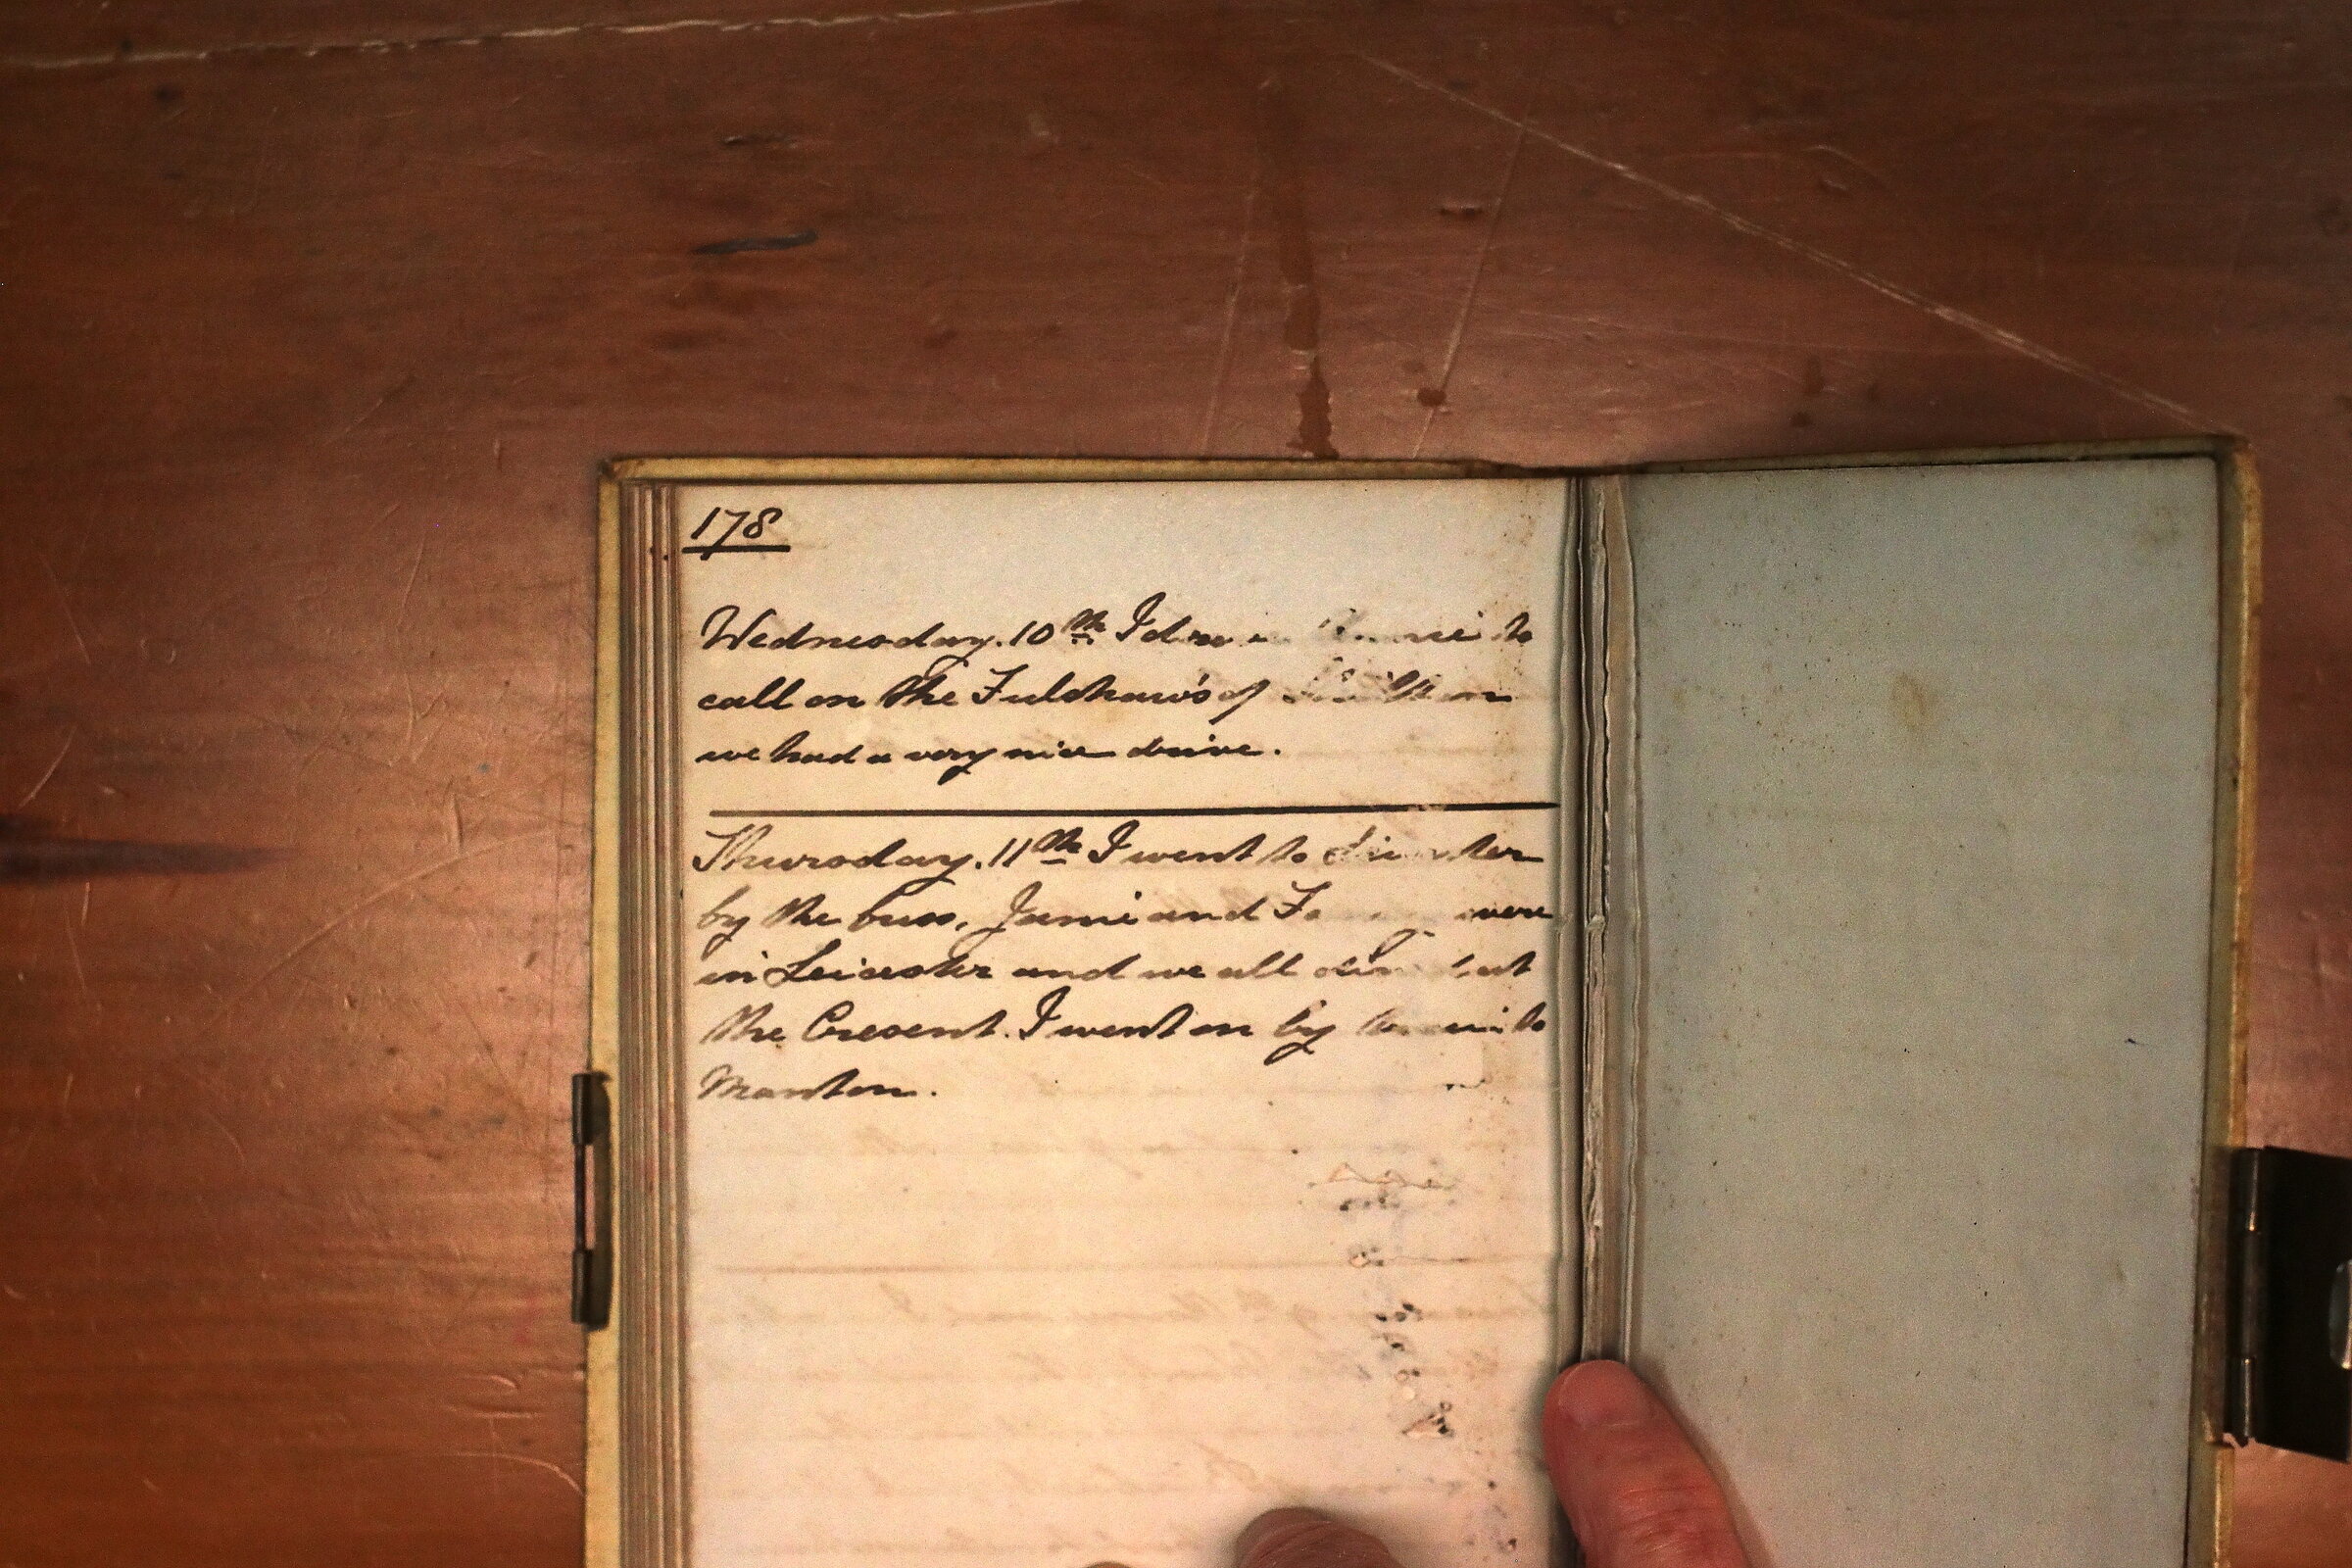 178
Wednesday. 10th I drove Annie to
call on the Fulshaw's of
we had a very nice drive.
Thursday. 11th I went to Leicester
by the buss, Jamie and Fanny were
in Leicester and we all dined at
the Cresent. I went on by train to
Manton.